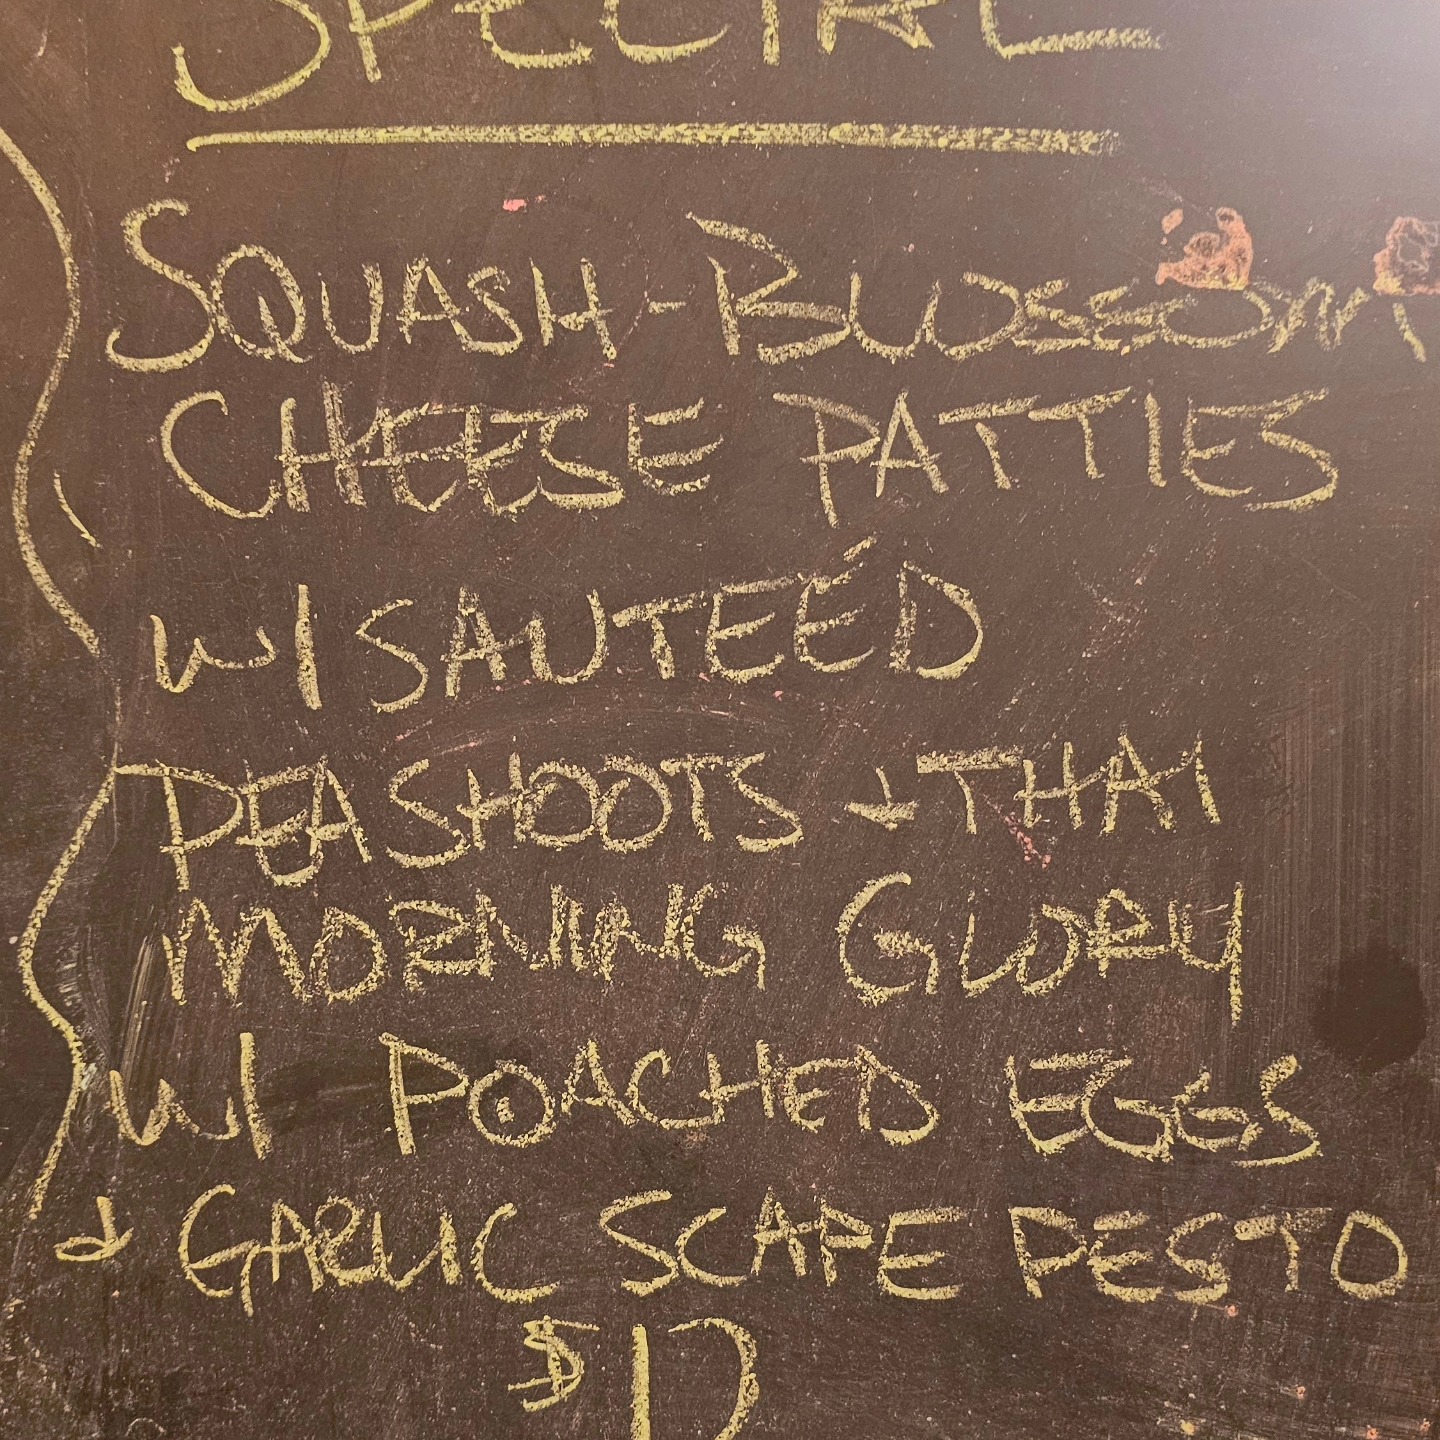 SPECIAL
SQUASH-BLOSSOM
CHEESE PATTIES
W/ SAUTEÉD
PEA SHOOTS + THAI
MORNING GLORY
W/ POACHED EGGS
+ GARLIC SCAPE PESTO